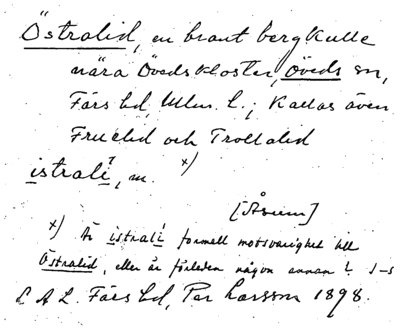 Östralid, en brant bergkulle
nära Övedskloster, Öveds sn,
Färs hd, Mlm. l.; Kallas även
Fruelid och Trollalid
istrali, m. x)
[Åsum]
x) Är istrali formell motsvarighet till
Östralid, eller är förleden någon annan? I-s
L A L. Färs hd, Per Larsson 1898.